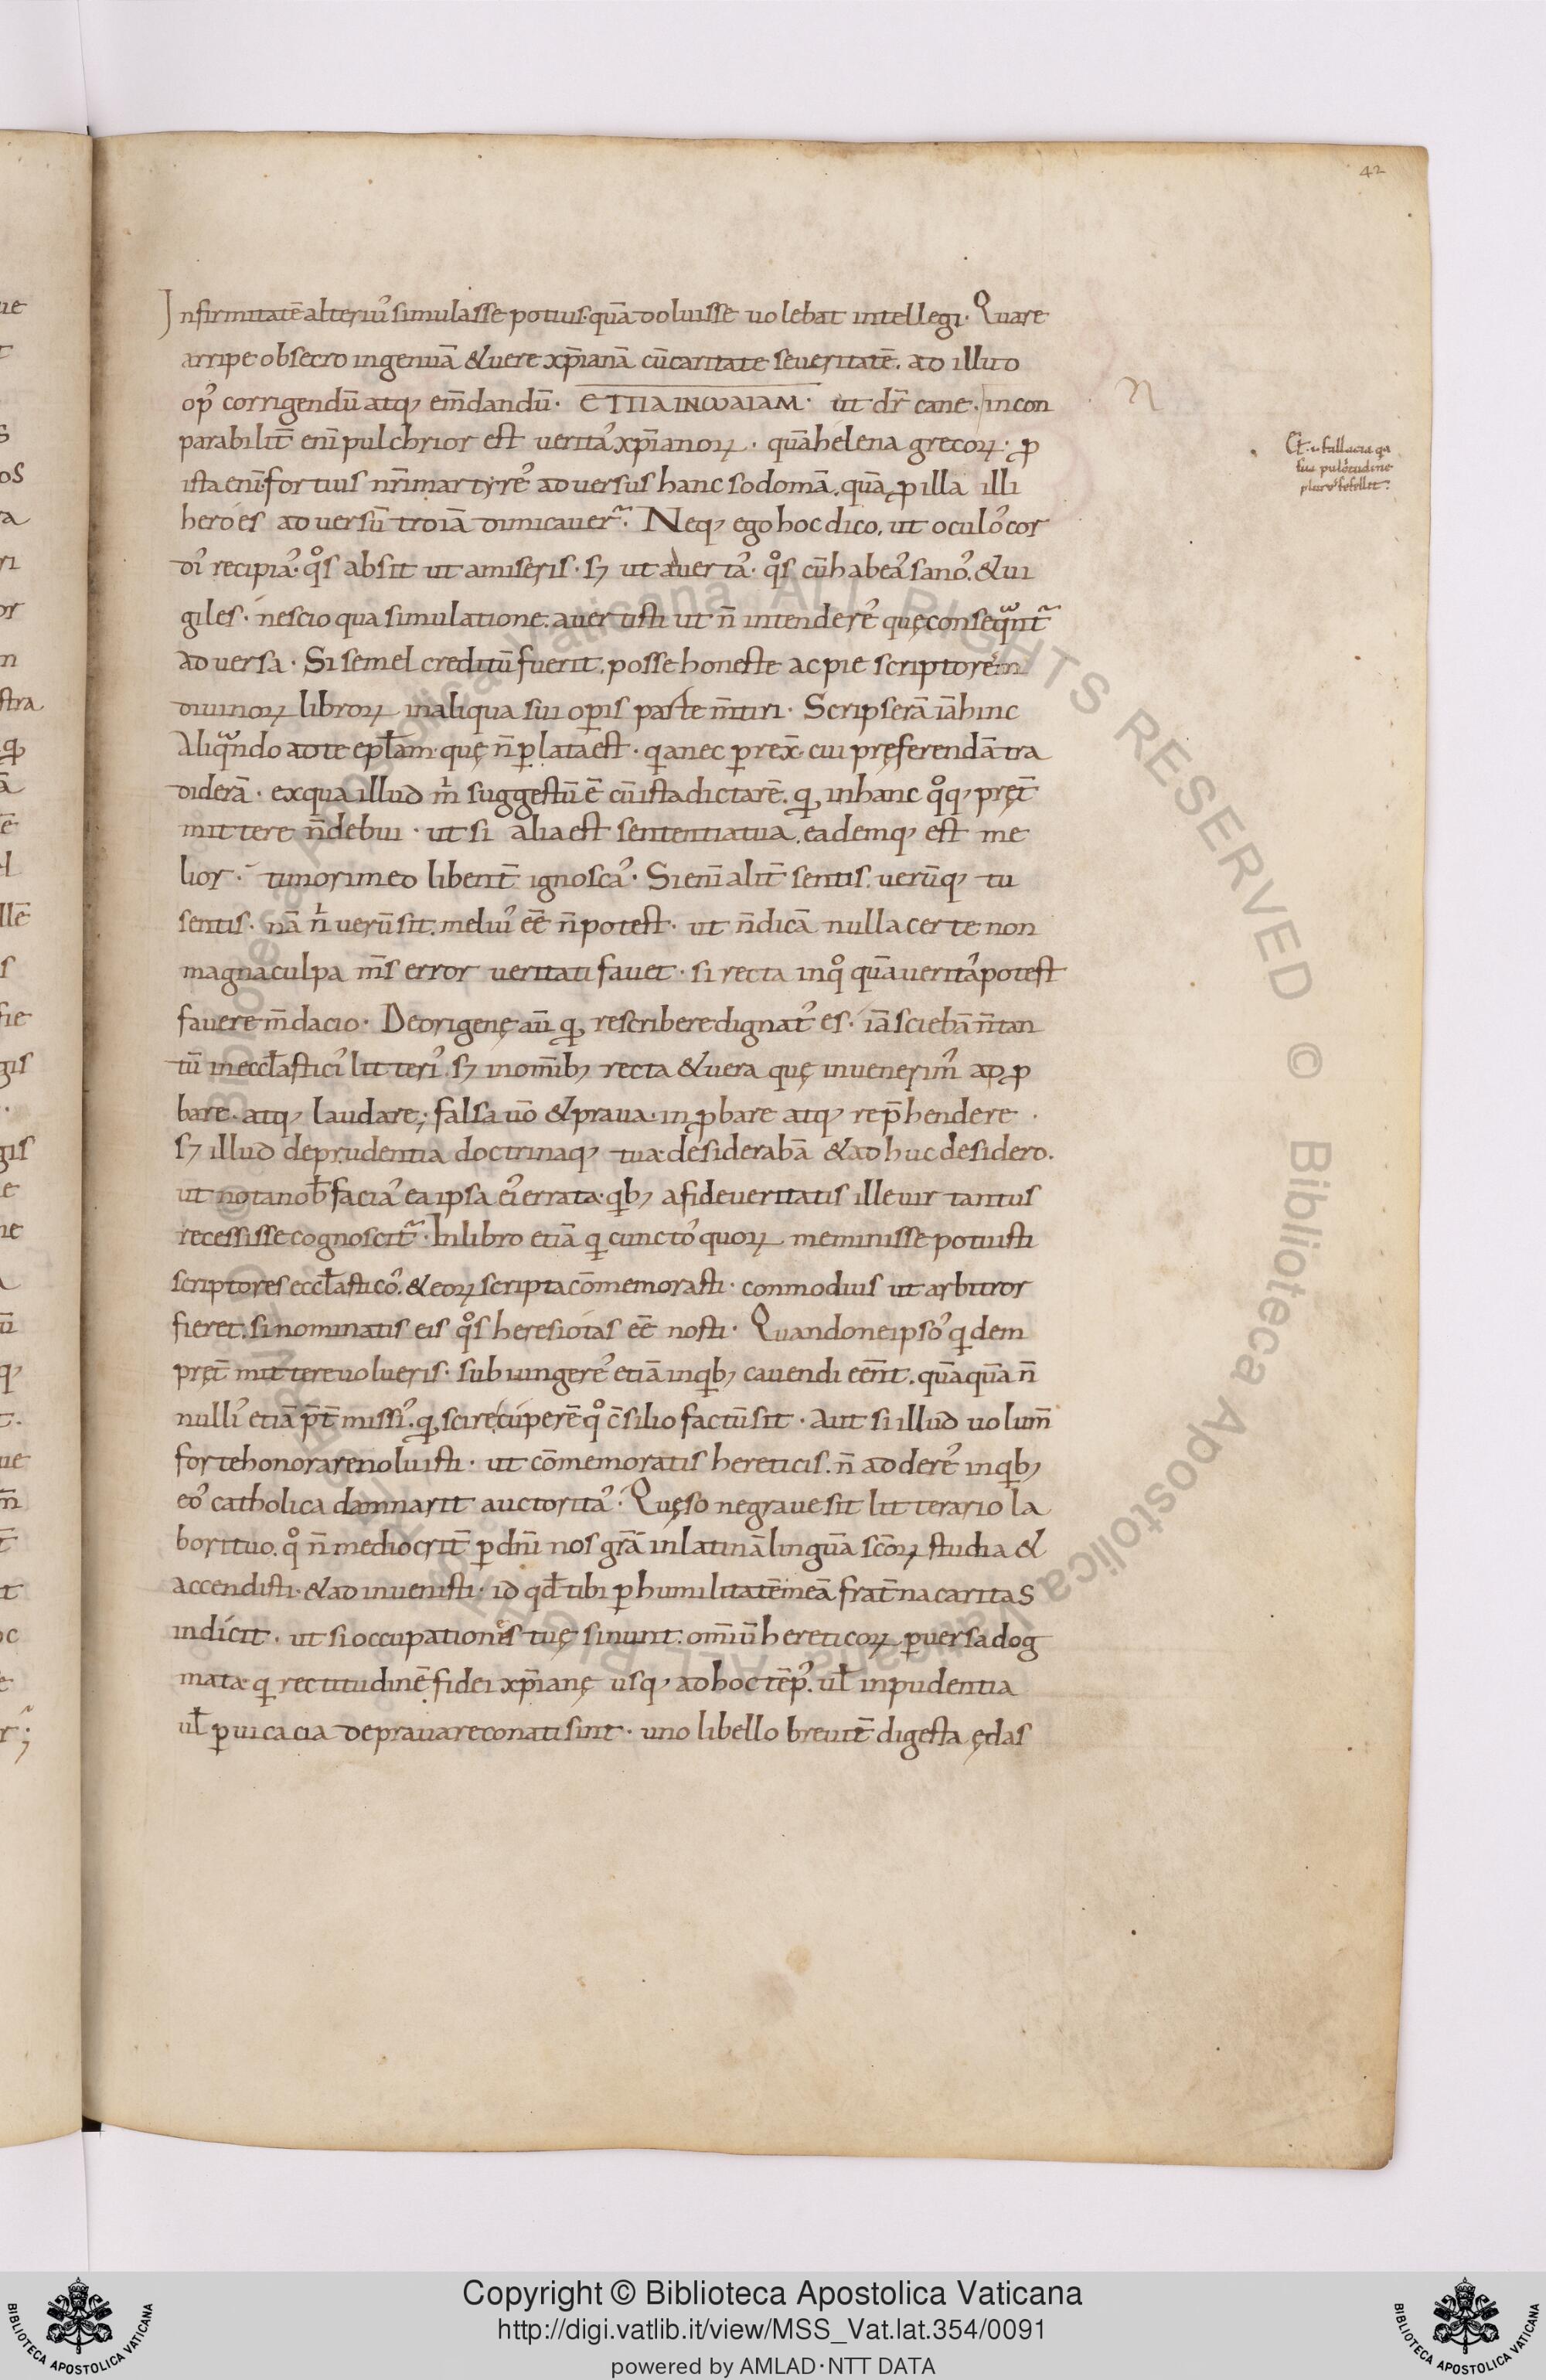 42
Infirmitatē alteriuˀ simulasse potius. quā doluisse uolebat intellegi. Quare
arripe obsecro ingenuā & uere xp̄ianā cū caritate seueritatē. ad illud
opˀ corrigendū atq, em̄dandū. ΕΤΠΑΙΝωΔΙΑΜ. ut dr̄ cane. incon
parabilit̄ eni pulchrior est ueritaˀ xp̄ianoꝝ. quā helena grecoꝝ. ꝓ
ista enī fortius nr̄i martyreˀ aduersus hanc sodomā. quā ꝓ illa illi
heroes aduersū troiā dimicauer̃. Neq, ego hoc dico, ut oculoˀ cor
diˀ recipiaˀ. qͦs absit ut amiseris. sꝫ ut auertaˀ. qͦs cū habeaˀ sanoˀ. & ui
giles. nescio qua simulatione. auertisti ut n̄ intendereˀ quę conseqͣnt̃
aduersa. Si semel creditū fuerit. posse honeste ac pie scriptorem
diuinoꝝ libroꝝ in aliqua sui oꝑis parte m̄tiri. Scripserā iā hinc
Aliqͣndo ad te epl̄am. quę n̄ ꝑlata est. qa nec ꝑrex̄. cui pręferendā tra
diderā. ex qua illud m̄ suggestū ē cū ista dictarē. q̨ in hanc qͦq, pręt̄
mittere n̄ debui. ut si alia est sententia tua. eademq, est me
lior. timori meo libent̄ ignoscaˀ. Si enī alit̄ sentis. uerūq, tu
sentis. nā nͥ uerū sit. meliuˀ eē n̄ potest. ut n̄ dicā nulla certe non
magna culpa m̄s error ueritati fauet. si recta in qͦquā ueritaˀ potest
fauere m̄dacio. De origenę aū q̨ rescribere dignat᾽ es. iā sciebā n̄ tan
tū in eccl̄asticiˀ litteriˀ. sꝫ in om̄ibꝫ recta & uera quę inuenerim᾽ adꝓ
bare. atq, laudare; falsa uō & praua. inꝓbare atq, rep̄hendere.
sꝫ illud de prudentia doctrinaq, tua. desiderabā & adhuc desidero.
ut nota nob̄ faciaˀ ea ipsa eiˀ errata. qbꝫ a fide ueritatis ille uir tantus
recessisse cognoscit̃. In libro etiā q cunctoˀ quoꝝ meminisse potuisti
scriptores eccl̄asticoˀ. & eoꝝ scripta cōmemorasti. conmodius ut arbitror
fieret. si nominatis eis qͦs heresiotas eē nosti. Quandone ipsoˀ qdem
pręt̄mittere uolueris. subiungereˀ etiā in qbꝫ cauendi eēnt. quāquā n̄
nulliˀ etiā p̄t̄missiˀ. q̨ scire cuperē qͦ c̄silio factū sit. Aut si illud uolum̄
forte honorare noluisti. ut cōmemoratis hereticis. n̄ addereˀ in qbꝫ
eoˀ catholica damnarit auctoritaˀ. Quęso ne graue sit litterario la
bori tuo. qͦ n̄ mediocrit̄ ꝑ dn̄i nos grā in latinā linguā scōꝝ studia &
accendisti. & adinuenisti. id qd̄ tibi ꝑ humilitatē meā frat̄na caritas
indicit. ut si occupationes tuę sinunt. om̄iū hereticoꝝ ꝑuersa dog
mata. q rectitudinē fidei xp̄ianę usq, ad hoc tēpˀ. ul̄ inpudentia
ul̄ ꝑuicacia deprauare conati sint. uno libello breuit̄ digesta ędas
© Biblioteca Apostolica Vaticana ALL RIGHTS RESERVED
Copyright © Biblioteca Apostolica Vaticana
http://digi.vatlib.it/view/MSS_Vat.lat.354/0091
powered by AMLAD·NTT DATA
BIBLIOTECA APOSTOLICA VATICANA
BIBLIOTECA APOSTOLICA VATICANA